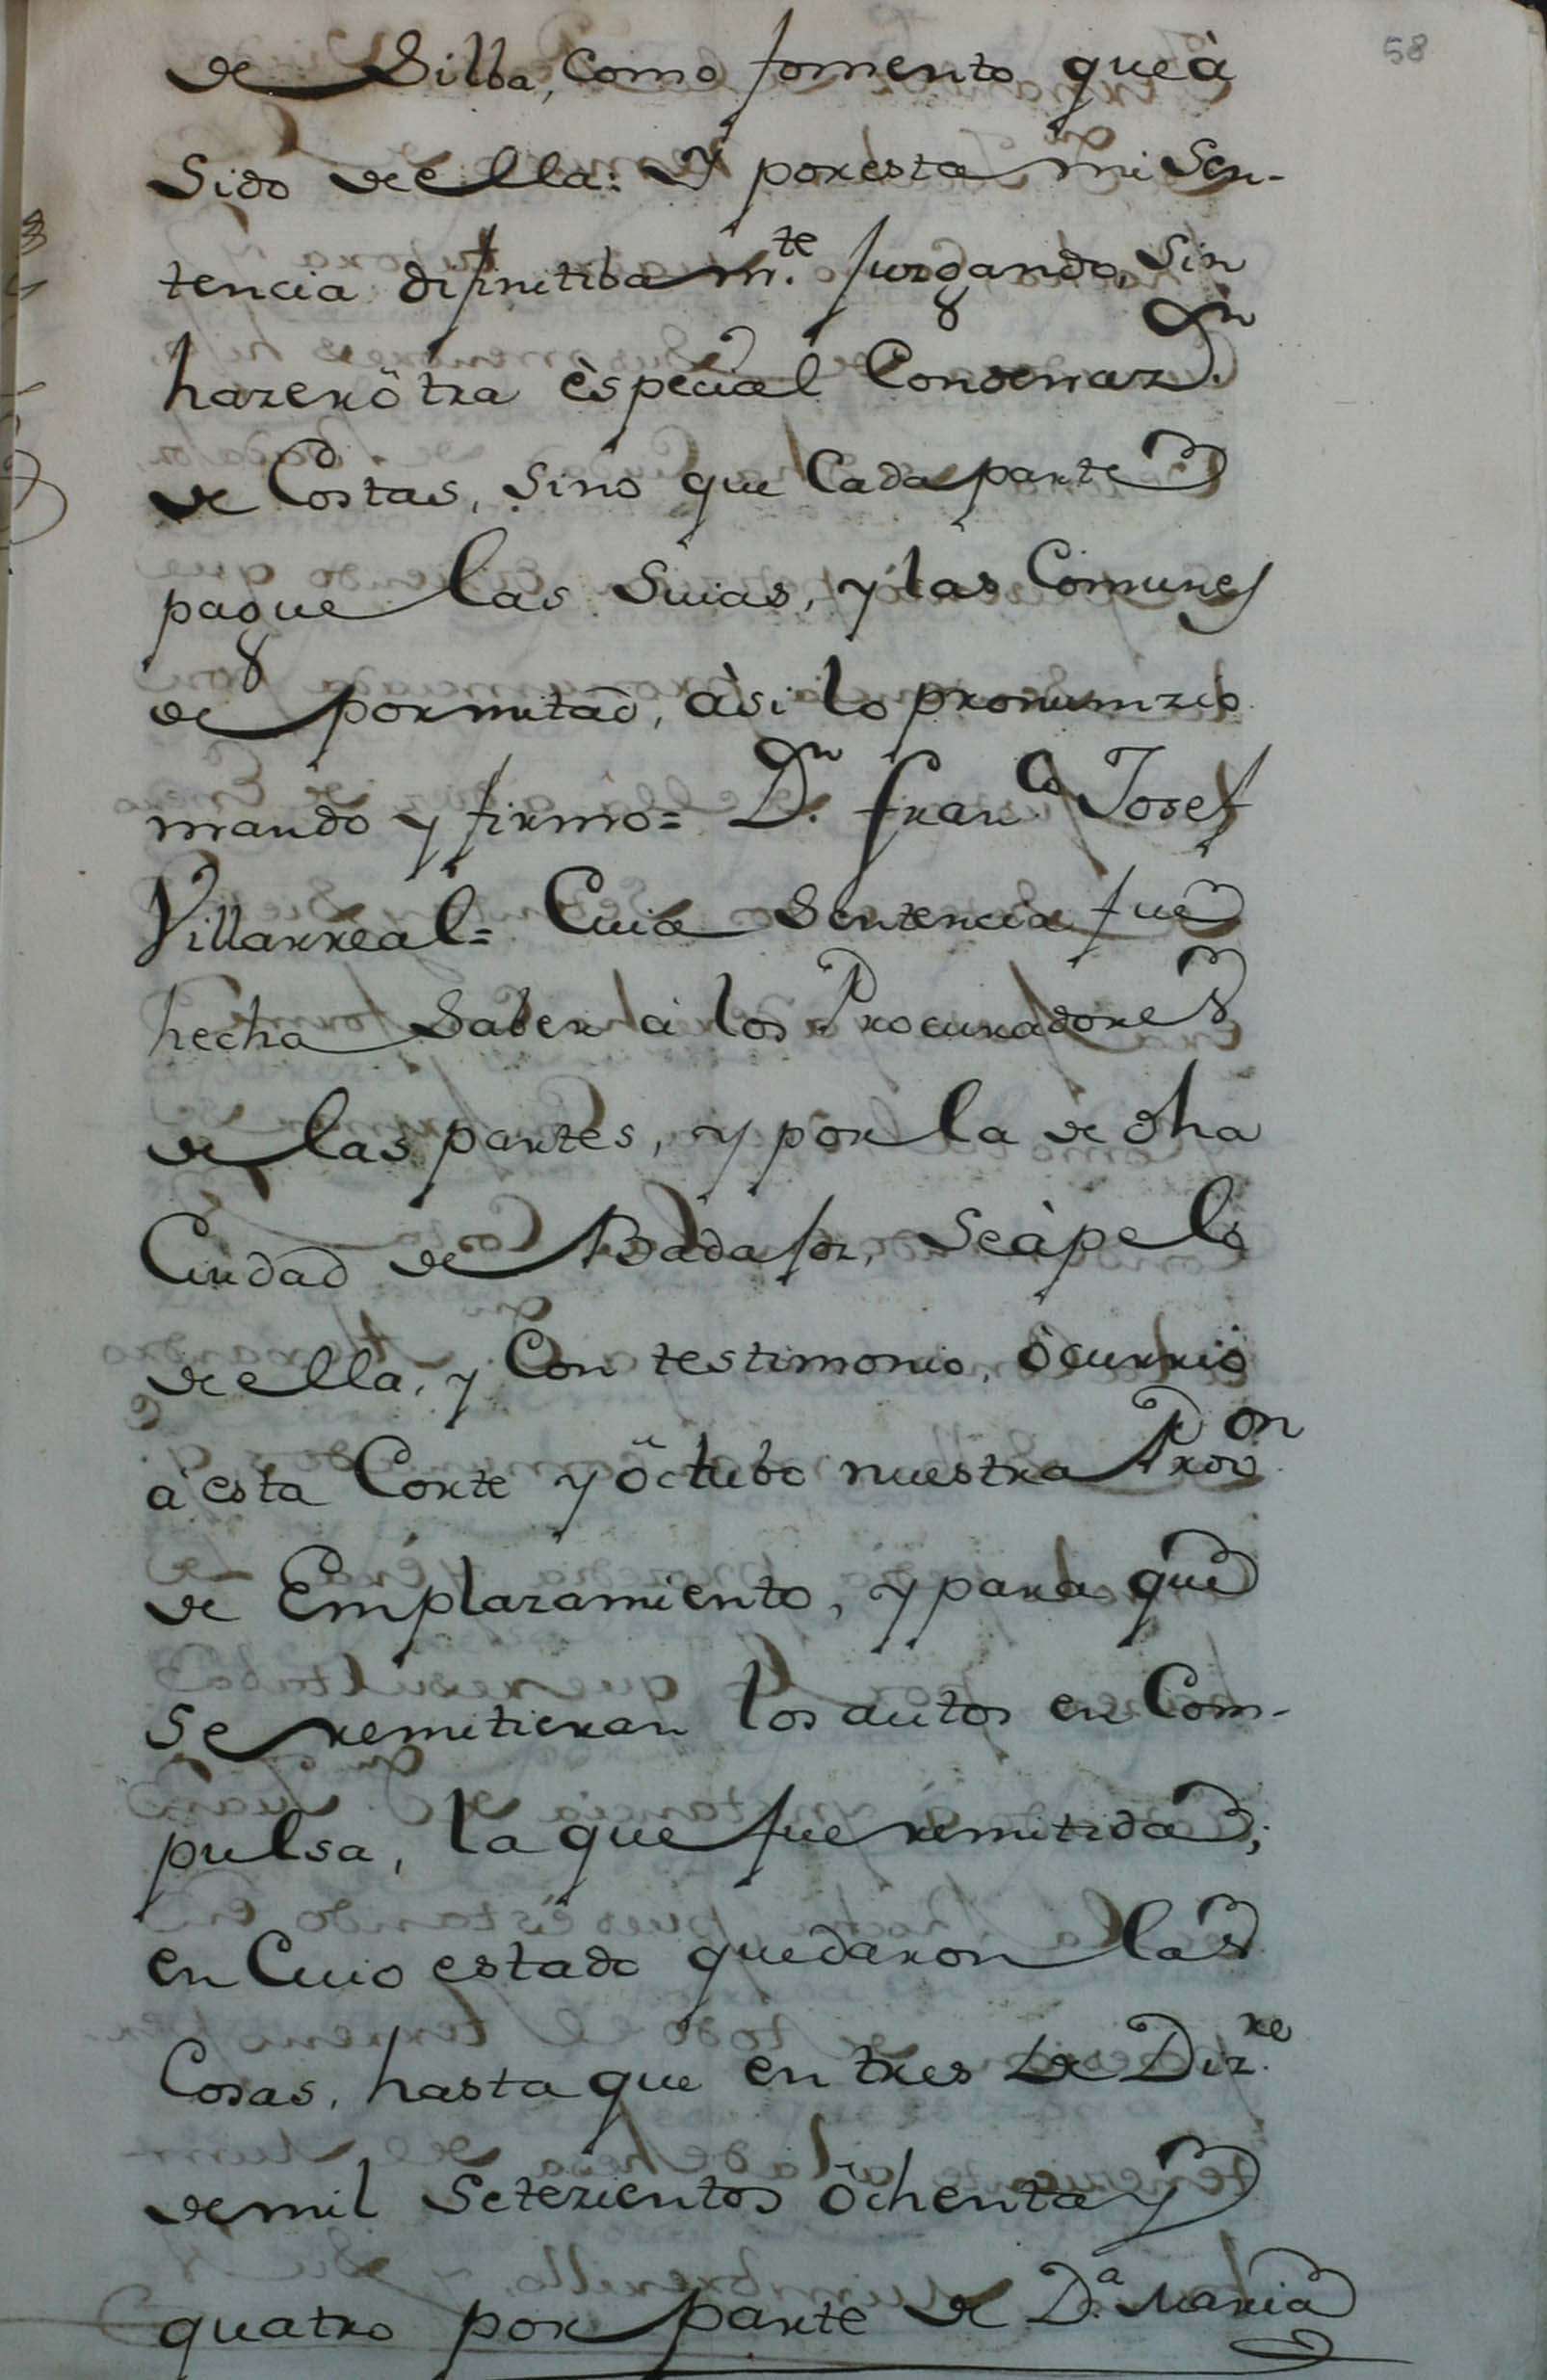 58
de Silba, Como fomento que à
Sido de ella: Y por esta mi Sen-
tencia difinitiba m.te Jurgando, Sin
harer ötra èspecial Condenaz.on
de Costas, Sino que Cada parte
pague las Suias, y las Comunes
de por mitad, àsi lo pronunzio
mando y firmo = D.n Fran.co Josef
Villarreal = Cuia Sentencia fue
hecha Saber a los Procuradores
de las partes, y por la de dha
Ciudad de Badajoz, Se àpelo
de ella, y Con testimonio, òcurrio
a esta Corte y öctubo nuestra Prov.on
de Emplazamiento, y para que
Se remitieran los autos en Com-
pulsa, la que fue remitida;
en Cuio estado quedaron las
Cosas, hasta que en tres de Diz.re
de mil Setezientos öchenta y
quatro por parte de D.a Maria